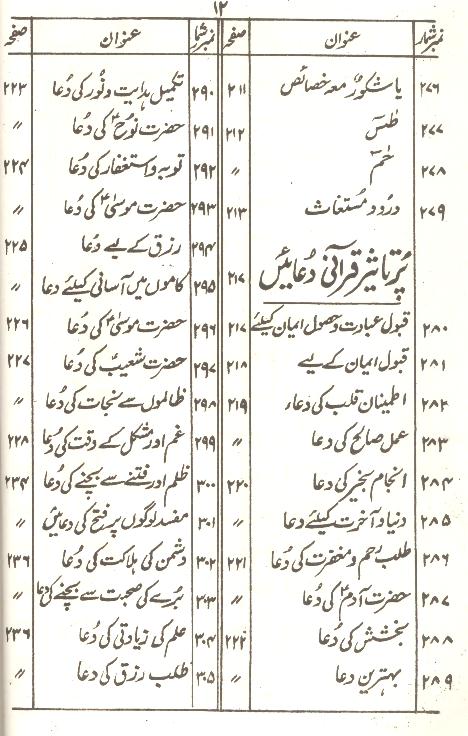 ۱۲
نمبر شمار عنوان صفحہ
۲۷۶ یا شکورُ معہ خصائص ۲۱۱
۲۷۷ طٰسٓ ۲۱۲
۲۷۸ حٰمٓ 〃
۲۷۹ درود مُستغاث ۲۱۳
پُر تاثیر قرآنی دُعائیں ۲۱۷
۲۸۰ قبول عبادت و حصول ایمان کیلئے ۲۱۷
۲۸۱ قبول ایمان کے لیے ۲۱۸
۲۸۲ اطمینان قلب کی دعاء ۲۱۹
۲۸۳ عمل صالح کی دعا 〃
۲۸۴ انجام بخیر کی دعا ۲۲۰
۲۸۵ دنیا و آخرت کیلئے دعا 〃
۲۸۶ طلب رحم و مغفرت کی دُعا ۲۲۱
۲۸۷ حضرت آدمؑ کی دُعا 〃
۲۸۸ بخشش کی دُعا ۲۲۲
۲۸۹ بہترین دعا 〃
نمبر شمار عنوان صفحہ
۲۹۰ تکمیل ہدایت و نُور کی دُعا ۲۲۳
۲۹۱ حضرت نوُحؑ کی دُعا 〃
۲۹۲ توبہ و استغفار کی دُعا ۲۲۴
۲۹۳ حضرت موسیٰؑ کی دُعا 〃
۲۹۴ رزق کے لیے دُعا ۲۲۵
۲۹۵ کاموں میں آسانی کیلئے دعا 〃
۲۹۶ حضرت موسیٰؑ کی دُعا ۲۲۶
۲۹۷ حضرت شعیبؑ کی دُعا ۲۲۷
۲۹۸ ظالموں سے نجات کی دُعا 〃
۲۹۹ غم اور مشکل کے وقت کی دُعا ۲۲۸
۳۰۰ ظلم اور فتنے سے بچنے کی دُعا ۲۳۴
۳۰۱ مفسد لوگوں پر فتح کی دعائیں 〃
۳۰۲ دشمن کی ہلاکت کی دُعا ۲۳۶
۳۰۳ بُرے کی صحبت سے بچنے کی دعا 〃
۳۰۴ علم کی زیادتی کی دُعا ۲۳۶
۳۰۵ طلب رزق کی دعا 〃